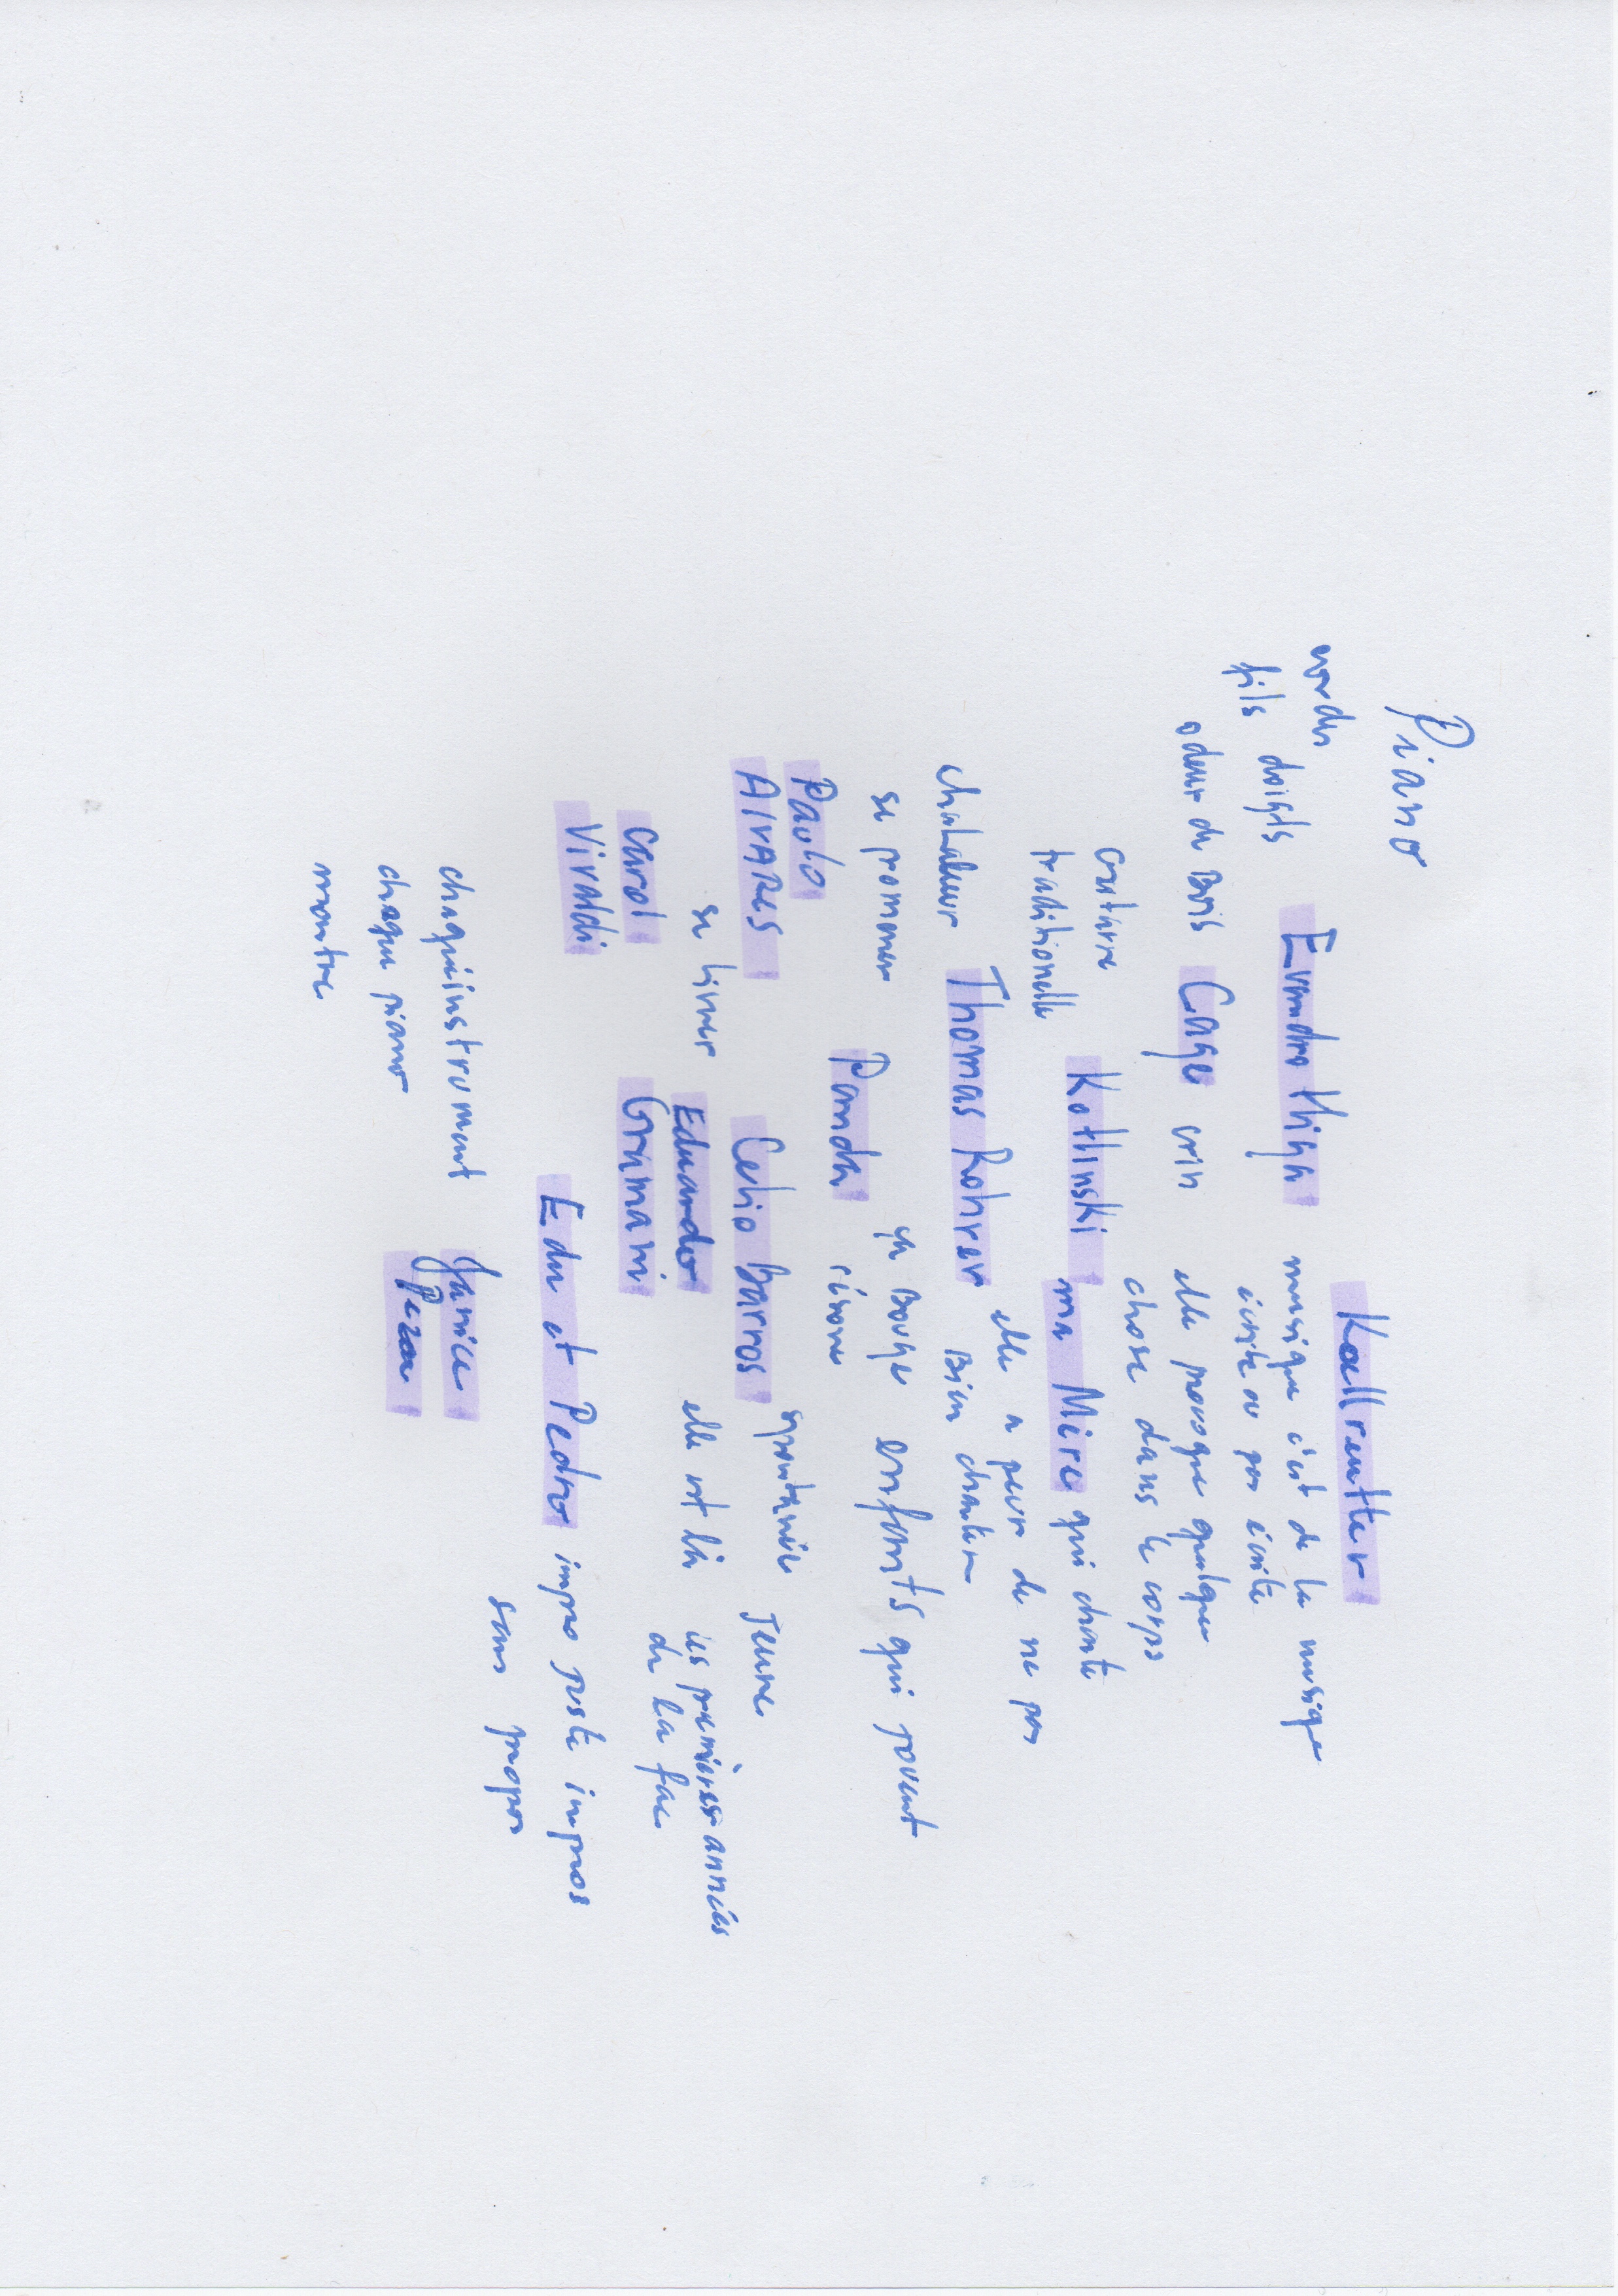 Piano
Koellreutter
cordes Evandro Higa musique c'est de la musique
fils doigts écrite ou pas écrite
odeur de Bois Cage crin elle provoque quelque
chose dans le corps
Guitarre Kotlinski ma Mère qui chante
traditionelle
elle a peur de ne pas
chataleur Thomas Rohrer Bien chanter
se promener Panda ça Bouge enfants qui jouent
résone
Paulo
AlvARes Celio Barros spontanée Jeune
se livrer Eduardo elle est là les premières années
Carol Gramani de la fac
Vivaldi Edu et Pedro impro juste impros
sans propos
chaque instrument Janice
chaque piano
montre